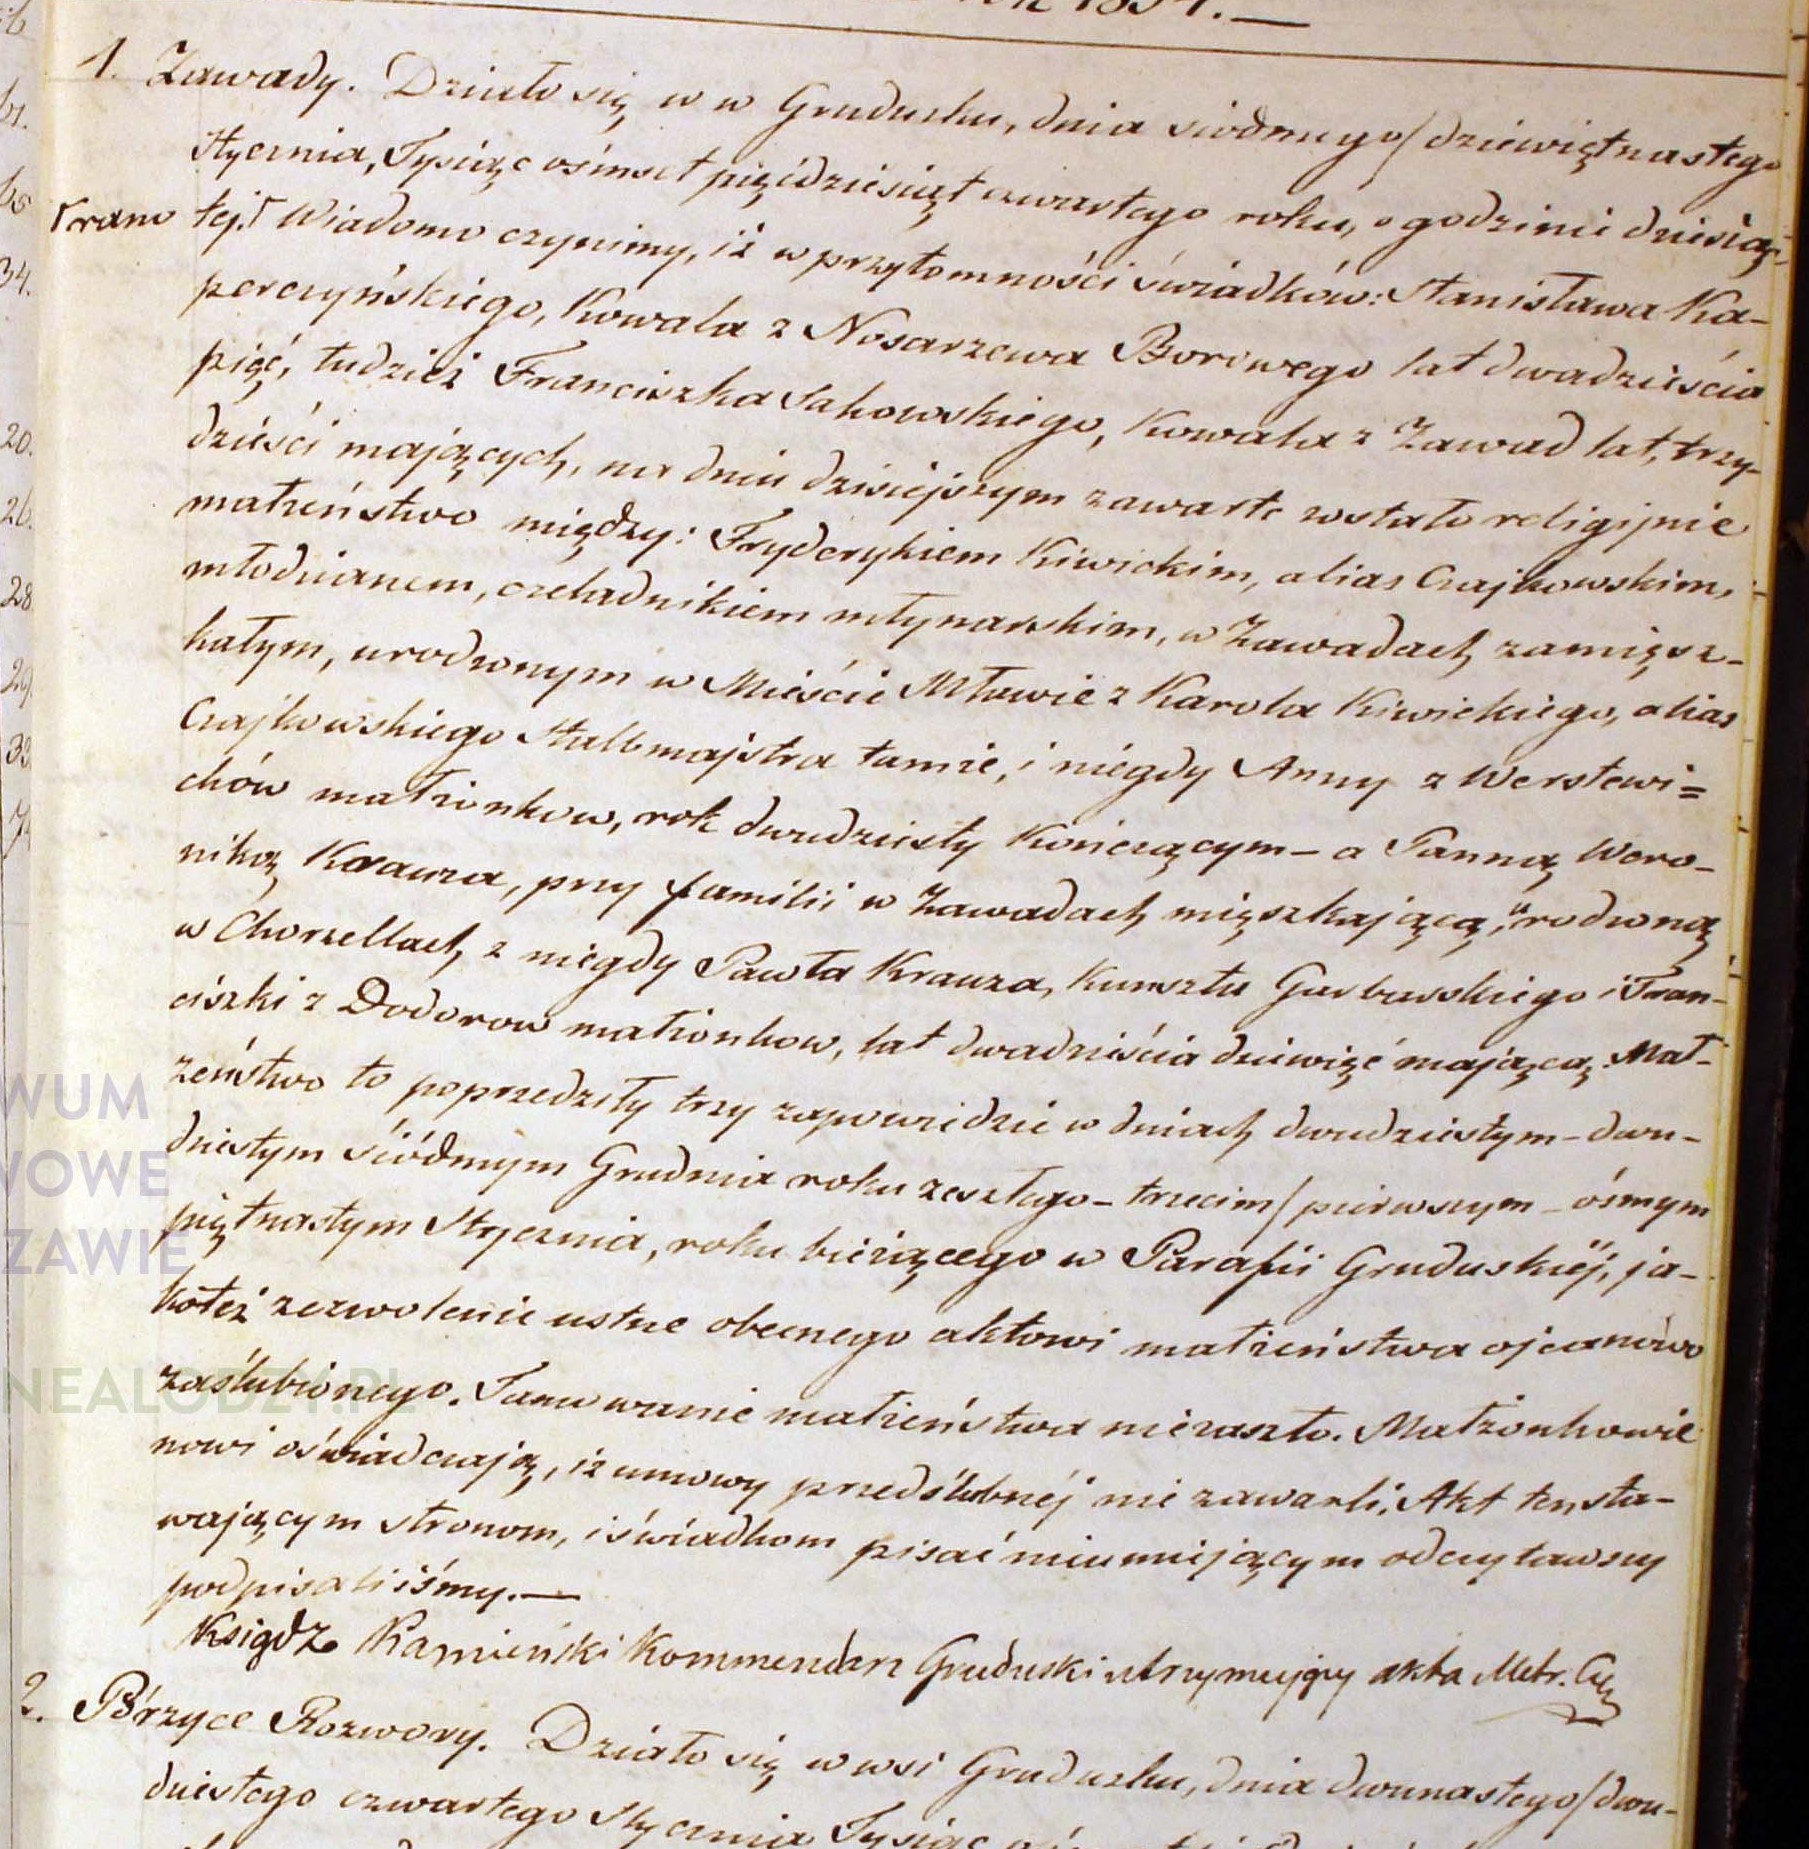 1854.
1. Zawady. Działo się w w Grudusku, dnia siódmego/dziewiętnastego
stycznia, Tysiąc ośmset pięćdziesiąt czwartego roku, o godzinie dziesią-
rano tej. Wiadomo czynimy, iż w przytomności świadków: Stanisława Ka-
perczyńskiego, Kowala z Nosarzewa Borowego lat dwadzieścia
pięć, tudzież Franciszka Sakowskiego, Kowala z Zawad lat, trzy-
dzieści mających, na dniu dzisiejszym zawarte zostało religijnie
małżeństwo między: Fryderykiem Kiwickim, alias Czajkowskim,
młodzianem, czeladnikiem młynarskim, w Zawadach zamięsz-
kałym, urodzonym w Mieście Mławie z Karola Kiwickiego, alias
Czajkowskiego Stallmajstra tamże, i niegdy Anny z Werstewi=
chów małżonkow, rok dwudziesty kończącym - a Panną Wero-
niką Krauza, przy familii w Zawadach mięszkającą, urodzoną
w Chorzellach z niegdy Pawła Krauza, kunsztu Garbarskiego i Fran-
ciszki z Dodorow małżonkow, lat dwadzieścia dziewięć mającą. Mał-
żeństwo to poprzedziły trzy zapowiedzie w dniach dwudziestym - dwu-
dziestym siódmym Grudnia roku zeszłego - trzecim/pierwszym - ósmym
piętnastym Stycznia, roku bieżącego w Parafii Gruduskiéj, ja-
koteż zezwolenie ustne obecnego aktowi małżeństwa ojca nowo
zaślubionego. Tamowanie małżeństwa nie zaszło. Małżonkowie
nowi oświadczają, iż umowy przedślubnéj nie zawarli. Akt ten sta-
wającym stronom, i świadkom pisać nieumiejącym odczytawszy
podpisaliśmy.—
Ksiądz Kamieński Kommendarz Gruduski utrzymujący akta Metr. Cy
2. Bórzyce Rozwory. Działo się w wsi Grudusku, dnia dwunastego/dwu-
dziestego czwartego Stycznia Tysiąc
34.
20.
26.
28
29
33
WUM
WOWE
ZAWIE
NEALODZY.PL